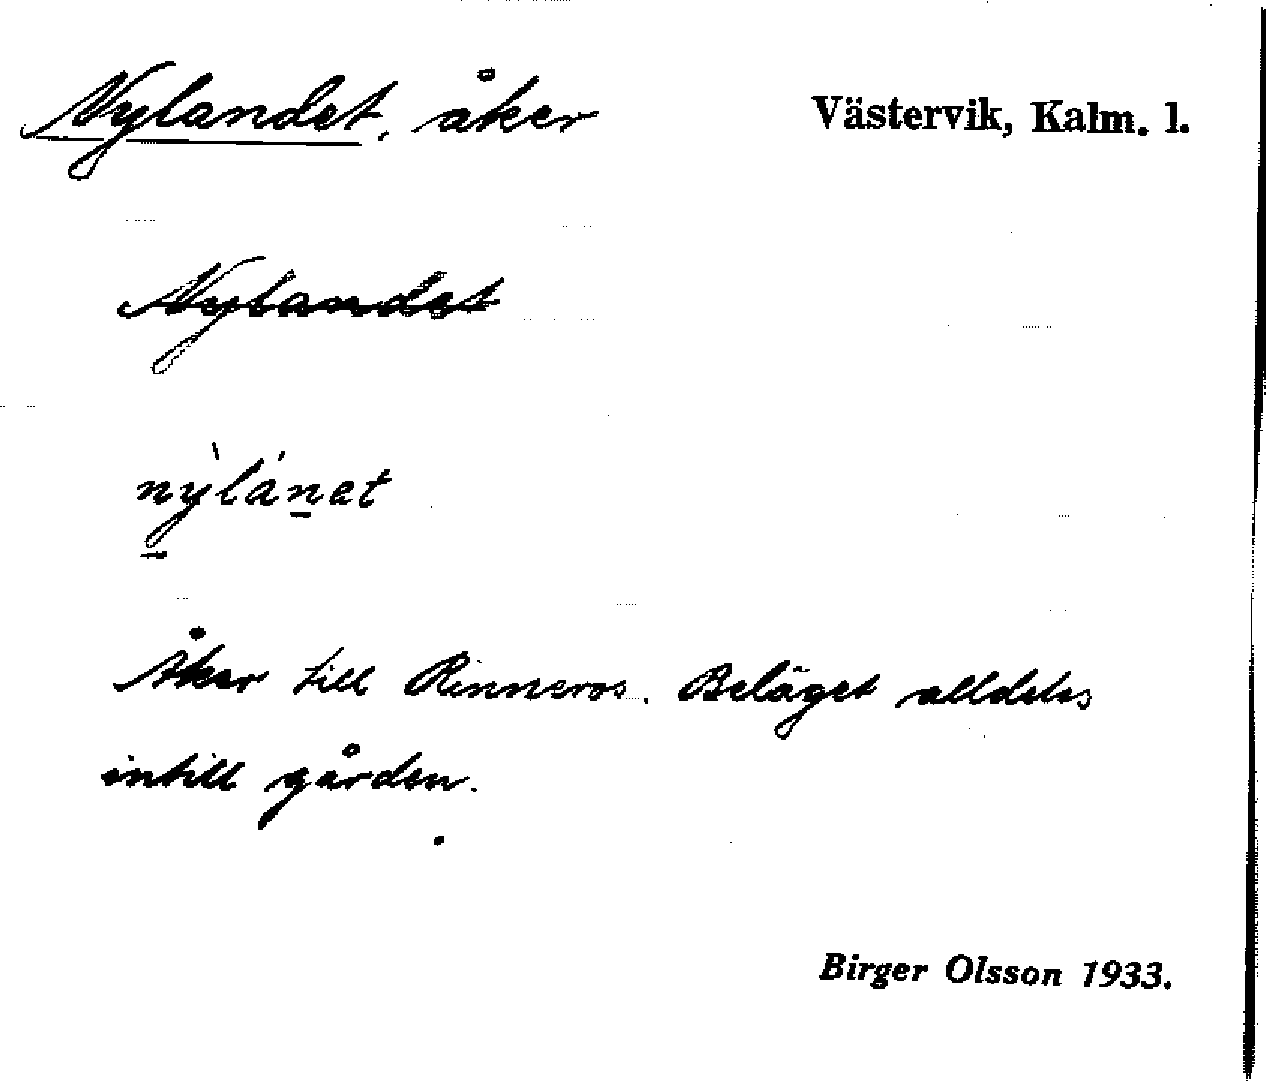 Nylandet, åker
Västervik, Kalm. l.
Nylandet
nỳ̠lán̠et
Åker till Rinneros. Beläget alldeles
intill gården.
Birger Olsson 1933.